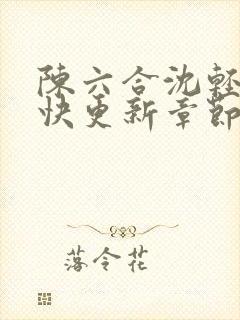 陳六合沈輕
快更新章節
落令花